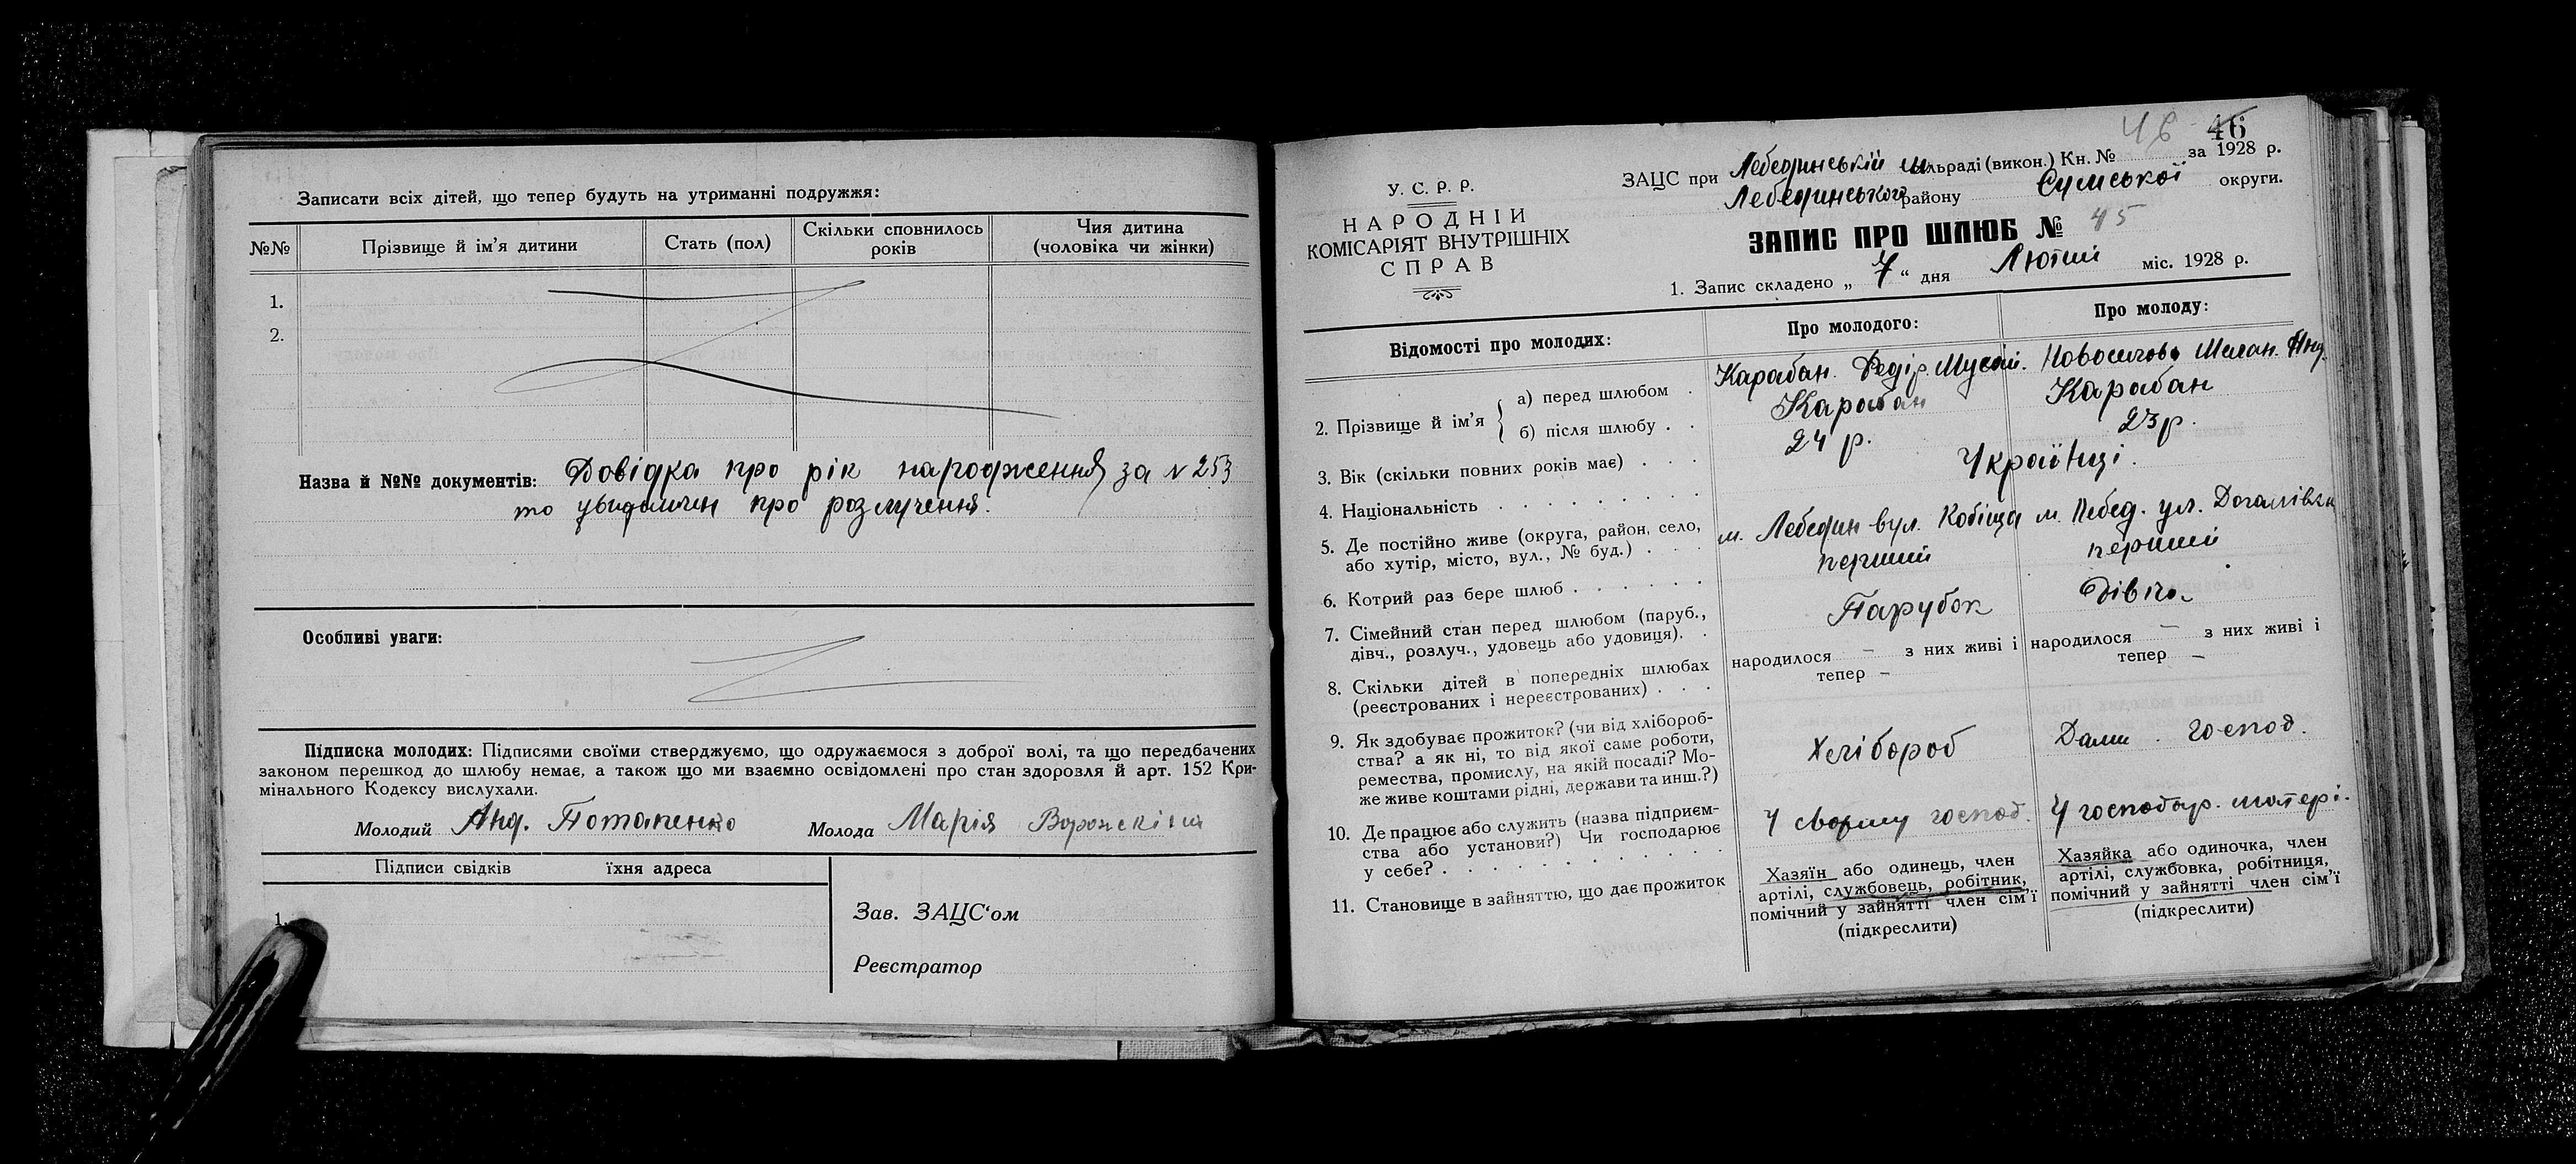 Записати всіх дітей, що тепер будуть на утриманні подружжя:
№№ Прізвище й ім'я дитини Стать (пол) Скільки сповнилось років Чия дитина (чоловіка чи жінки)
1.
2.
Назва й №№ документів: Довідка про рік народження за № 253
то про розлучення.
Особливі уваги:
Підписка молодих: Підписями своїми стверджуємо, що одружаємося з доброї волі, та що передбачених
законом перешкод до шлюбу немає, а також що ми взаємно освідомлені про стан здоровля й арт. 152 Кри-
мінального Кодексу вислухали.
Молодий Анд. Потапенко Молода Марія
Підписи свідків їхня адреса
1.
Зав. ЗАЦС'ом
Реєстратор
46 46
У. С. Р. Р.
НАРОДНІЙ
КОМІСАРІЯТ ВНУТРІШНІХ
СПРАВ
ЗАЦС при Лебединській міськраді (викон.) Кн. № за 1928 р.
Лебединського району Сумської округи.
ЗАПИС ПРО ШЛЮБ № 45
1. Запис складено „ 7 “ дня Лютий міс. 1928 р.
Відомості про молодих: Про молодого: Про молоду:
2. Прізвище й ім'я
а) перед шлюбом . Карабан Федір Мусій. Мелан. Анд.
б) після шлюбу . . Карабан Карабан
3. Вік (скільки повних років має) . . . 24 р. 23 р.
4. Національність . . . . . . . . Українці.
5. Де постійно живе (округа, район, село,
або хутір, місто, вул., № буд.) . . . м. Лебедин вул. Кобіща м. Лебед. ул.
6. Котрий раз бере шлюб . . . . . . перший перший
7. Сімейний стан перед шлюбом (паруб.,
дівч., розлуч., удовець або удовиця). . Парубок Дівч.
8. Скільки дітей в попередніх шлюбах
(реєстрованих і нереєстрованих) . . .
народилося – з них живі і
тепер –
народилося – з них живі і
тепер –
9. Як здобуває прожиток? (чи від хлібороб-
ства? а як ні, то від якої саме роботи,
ремества, промислу, на якій посаді? Мо-
же живе коштами рідні, держави та инш.?)
Хлібороб
Дом. господ.
10. Де працює або служить (назва підприєм-
ства або установи?) Чи господарює
у себе? . . . . . . . . . . .
У своєму господ.
У господар. матері.
11. Становище в зайняттю, що дає прожиток
Хазяїн або одинець, член
артілі, службовець, робітник,
помічний у зайнятті член сім'ї
(підкреслити)
Хазяйка або одиночка, член
артілі, службовка, робітниця,
помічний у зайнятті член сім'ї
(підкреслити)